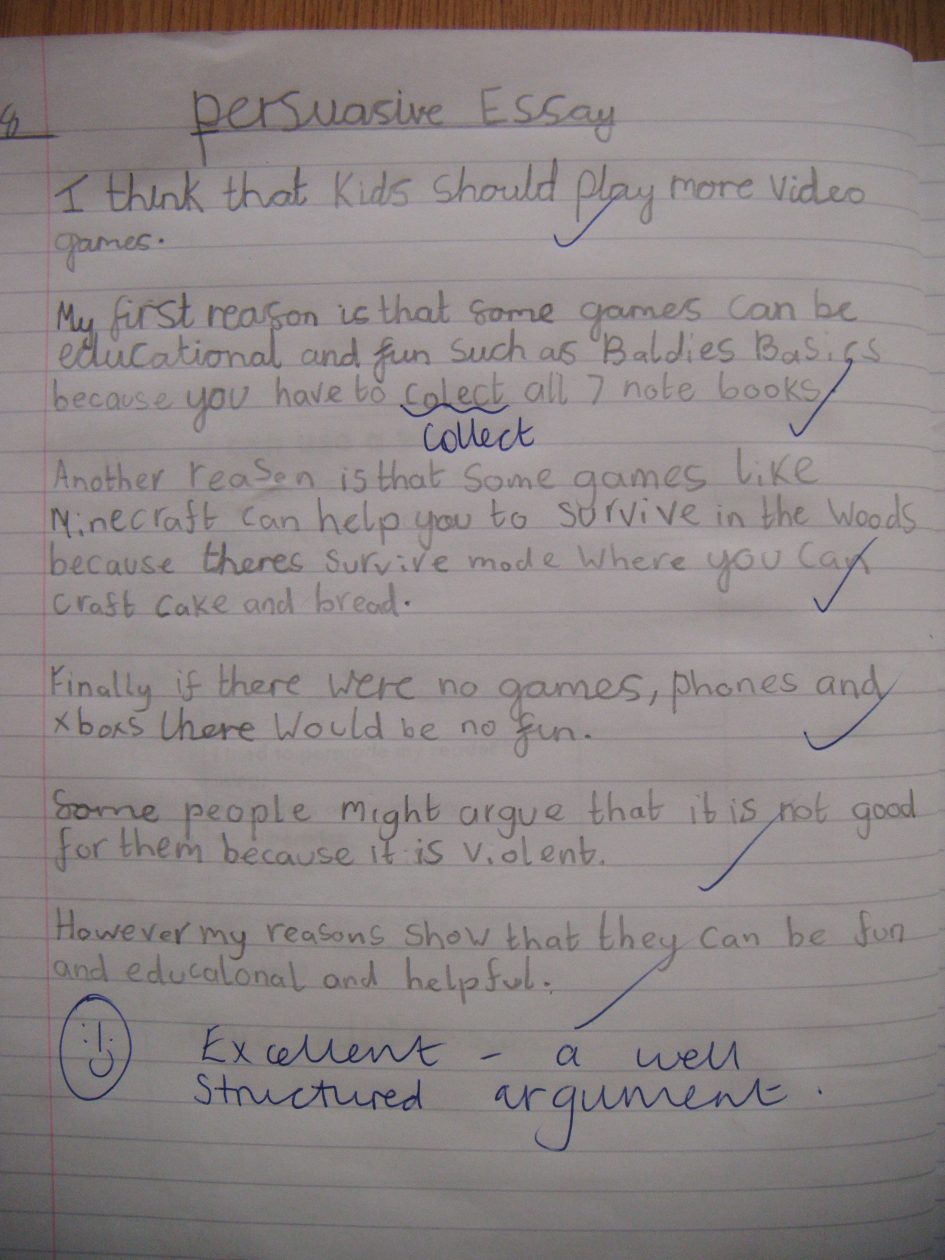 8
persuasive Essay
I think that Kids should play more video
games.
My first reason is that some games can be
educational and fun such as Baldies Basics
because you have to colect all 7 note books
collect
Another reason is that some games like
Minecraft can help you to survive in the woods
because theres survive mode where you can
craft cake and bread.
Finally if there were no games, phones and
xboxs there would be no fun.
Some people might argue that it is not good
for them because it is violent.
However my reasons show that they can be fun
and educatonal and helpful.
Excellent - a well
structured argument.